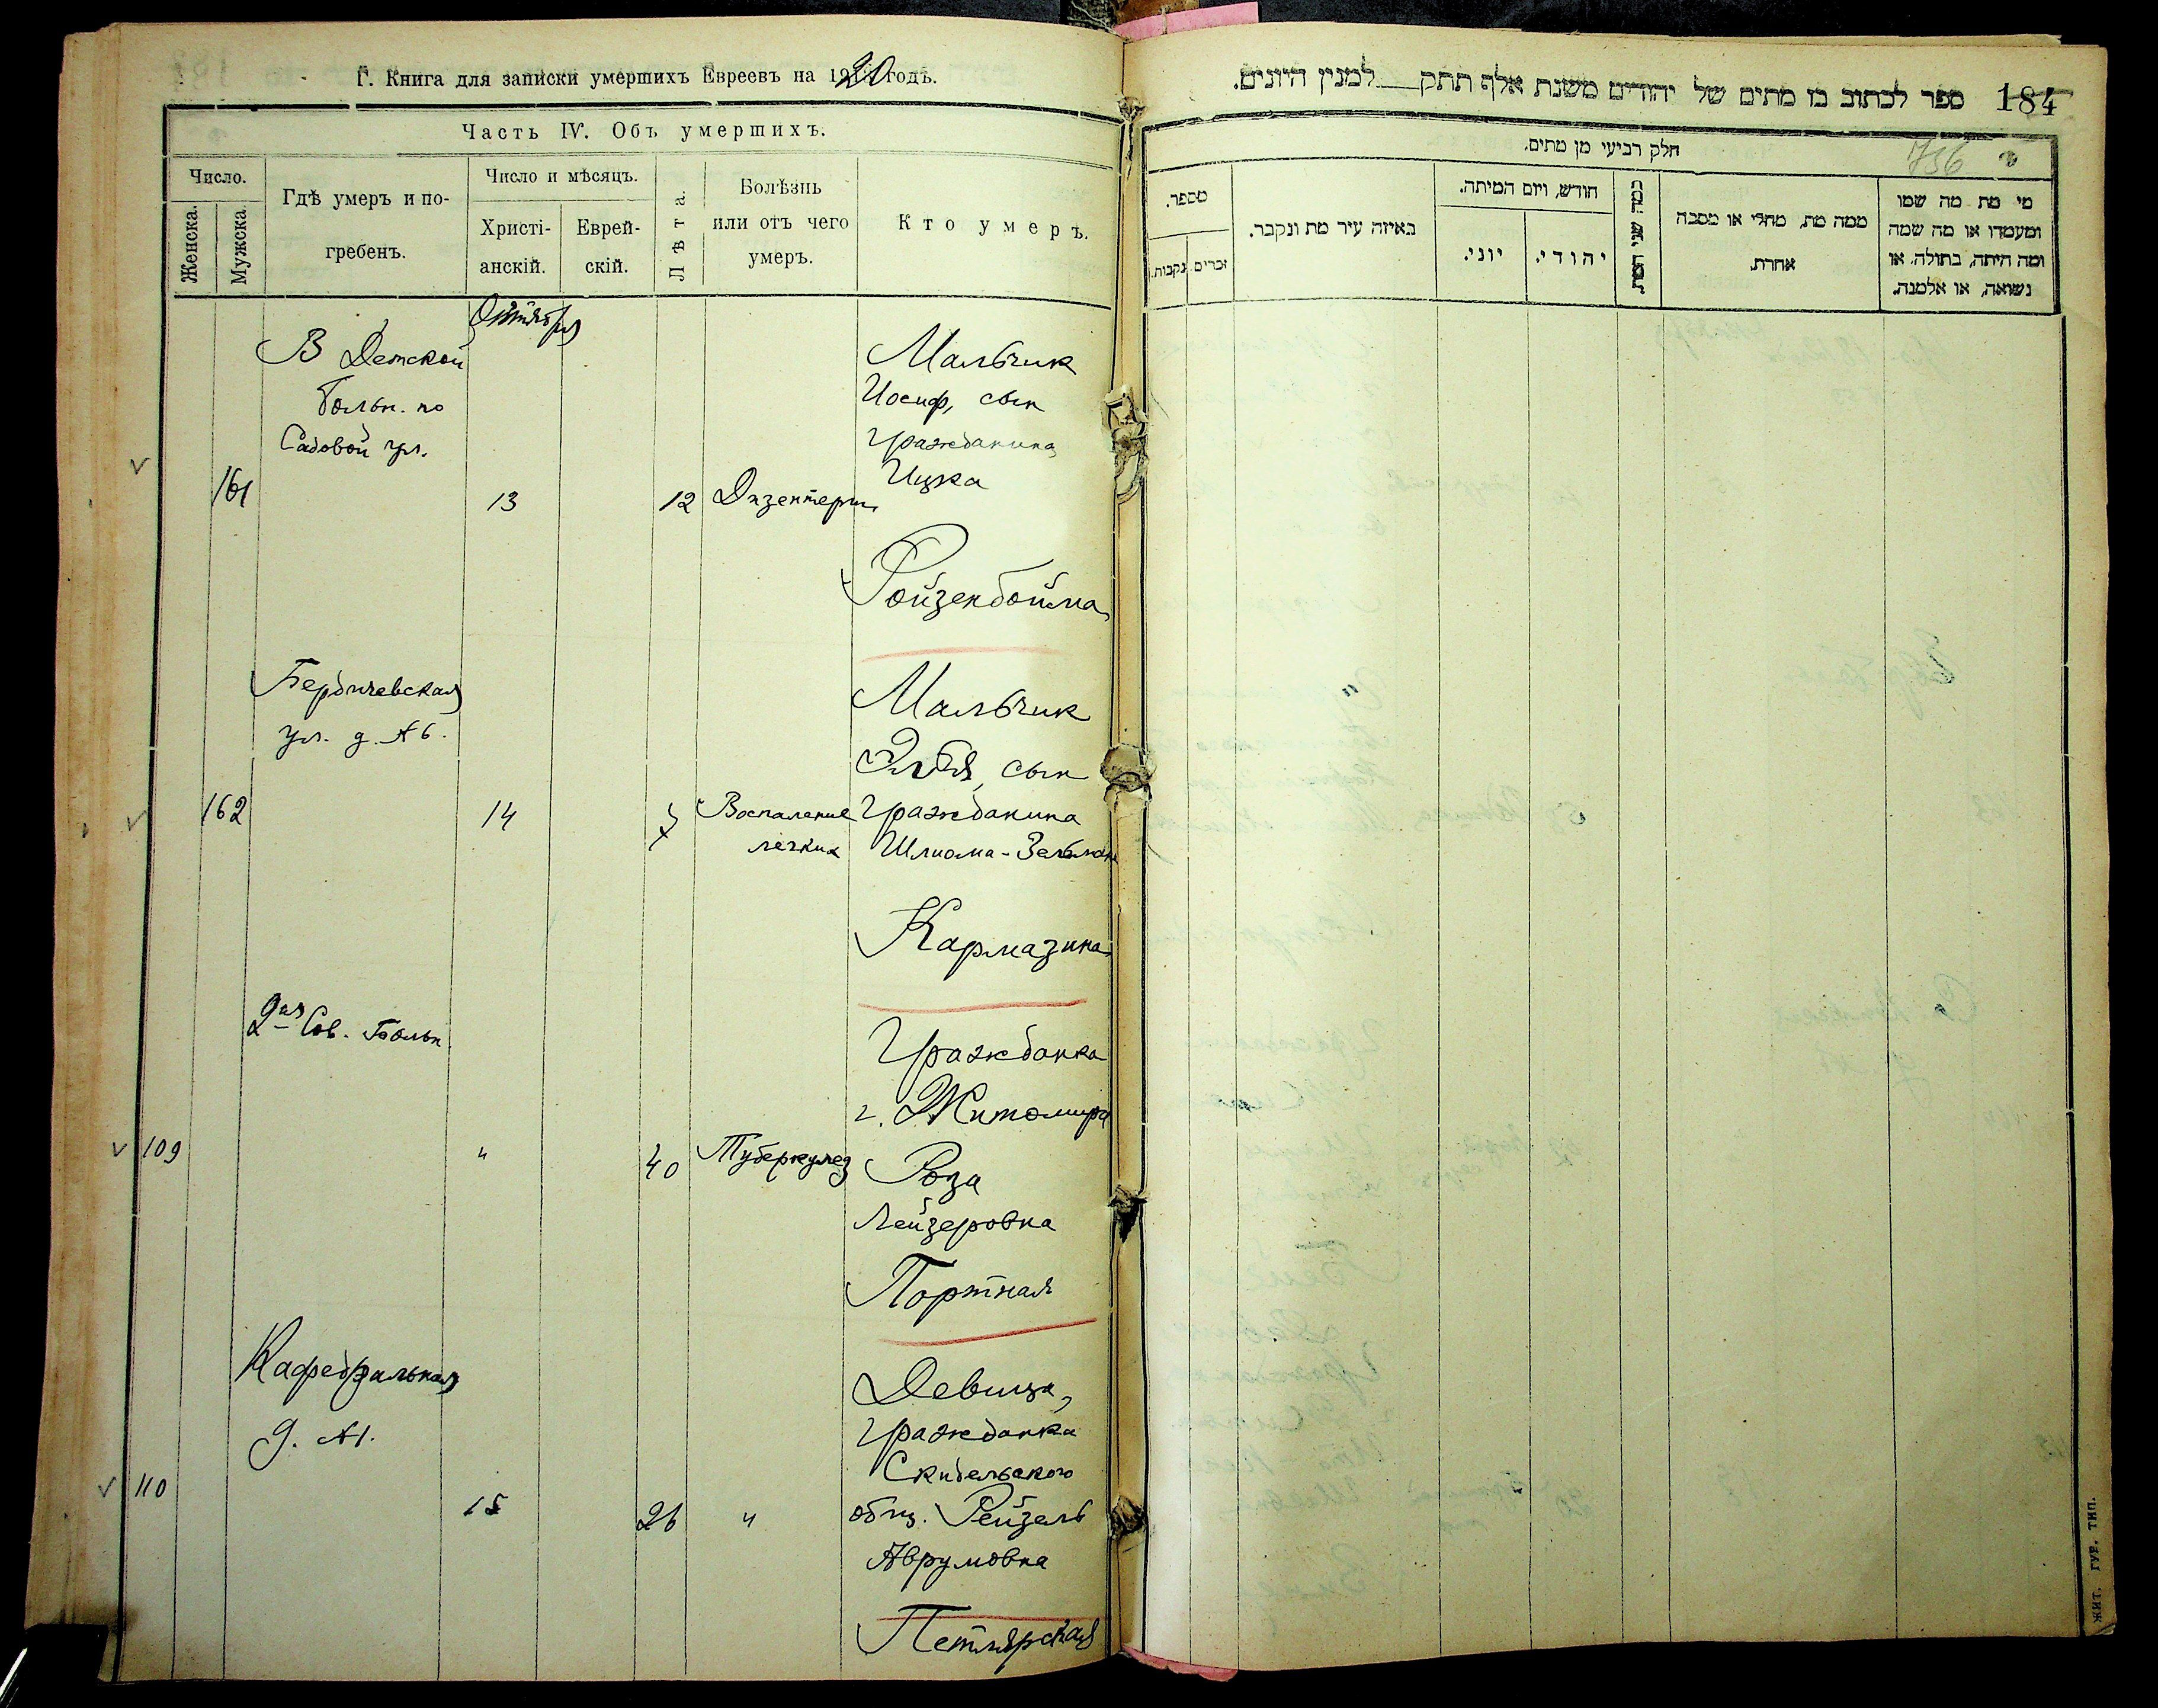 Г. Книга для записки умершихъ Евреевъ на 1920 годъ.
Часть IV. Объ умершихъ.
Число.
Женска.
Мужска.
Гдѣ умеръ и по-
гребенъ.
Число и мѣсяцъ.
Христі-
анскій.
Еврей-
скій.
Лѣта.
Болѣзнь
или отъ чего
умеръ.
Кто умеръ.
Октября
В Детской
Больн. по
Садовой ул.
161
13
12
Дизентерия
Мальчик
Иосиф, сын
гражданина
Ицка
Ройзенбойма
Бердичевская
ул. д. №6.
162
14
7
Воспаление
легких
Мальчик
Элья, сын
гражданина
Шлиома-Зельмана
Кармазина
2ая Сов. Больн
109
"
40
Туберкулез
Гражданка
г. Житомира
Роза
Лейзеровна
Портная
Кафедральная
д. №1.
110
15
26
"
Девица,
гражданка
Скидельского
общ. Рейзель
Аврумовна
Петлярская
ספר לכתוב בו מתים של יהודים משנת אלף תתק למנין היונים.
184
736
חלק רביעי מן מתים.
מספר.
נקבות.
זכרים
באיזה עיר מת ונקבר.
חודש, ויום המיתה.
יוני.
יהודי.
כמה שני המת.
ממה מת, מחלי או מסבה
אחרת.
מי מת מה שמו
ומעמדו או מה שמה
ומה היתה, בתולה, או
נשואה, או אלמנה.
ЖИТ. ГУБ. ТИП.